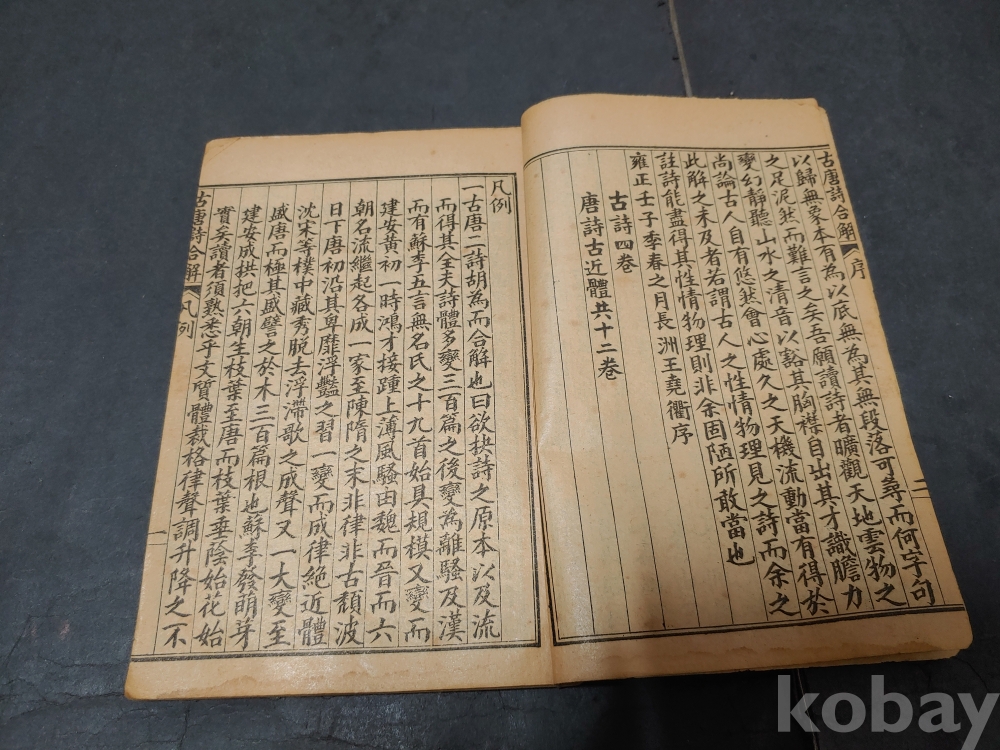 古唐詩合解 序 二
以歸無象本有為以底無為其無段落可尋而何字句
之足泥然而難言之矣吾願讀詩者曠觀天地雲物之
變幻靜聽山水之清音以豁其胸襟自出其才識膽力
尚論古人自有悠然會心處久之天機流動當有得於
此解之未及者若謂古人之性情物理見之詩而余之
註詩能盡得其性情物理則非余固陋所敢當也
雍正壬子季春之月長洲王堯衢序
古詩四卷
唐詩古近體共十二卷
凡例
一古唐二詩胡為而合解也曰欲抉詩之原本以及流
而得其全夫詩體多變三百篇之後變為離騷及漢
而有蘇李五言無名氏之十九首始具規模又變而
建安黃初一時鴻才接踵上薄風騷由魏而晉而六
朝名流繼起各成一家至陳隋之末非律非古頹波
日下唐初沿其卑靡浮豔之習一變而成律絕近體
沈宋等樸中藏秀脫去浮滯歌之成聲又一大變至
盛唐而極其盛譬之於木三百篇根也蘇李發萌芽
建安成拱把六朝生枝葉至唐而枝葉垂陰始花始
實矣讀者須熟悉乎文質體裁格律聲調升降之不
古唐詩合解 凡例 一
kobay